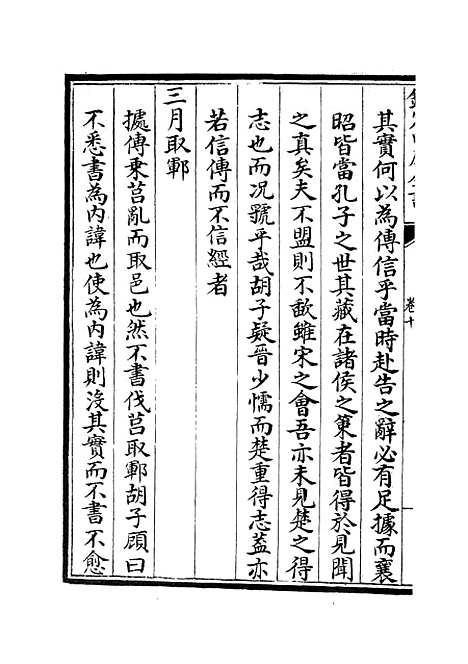 卷十
其實何以為傳信乎當時赴告之辭必有足據而襄
昭皆當孔子之世其藏在諸侯之策者皆得於見聞
之真矣夫不盟則不歃雖宋之會吾亦未見楚之得
志也而况虢乎哉胡子疑晉少懦而楚重得志葢亦
若信傳而不信經者
三月取鄆
據傳乘莒亂而取邑也然不書伐莒取鄆胡子顧曰
不悉書為内諱也使為内諱則沒其實而不書不愈